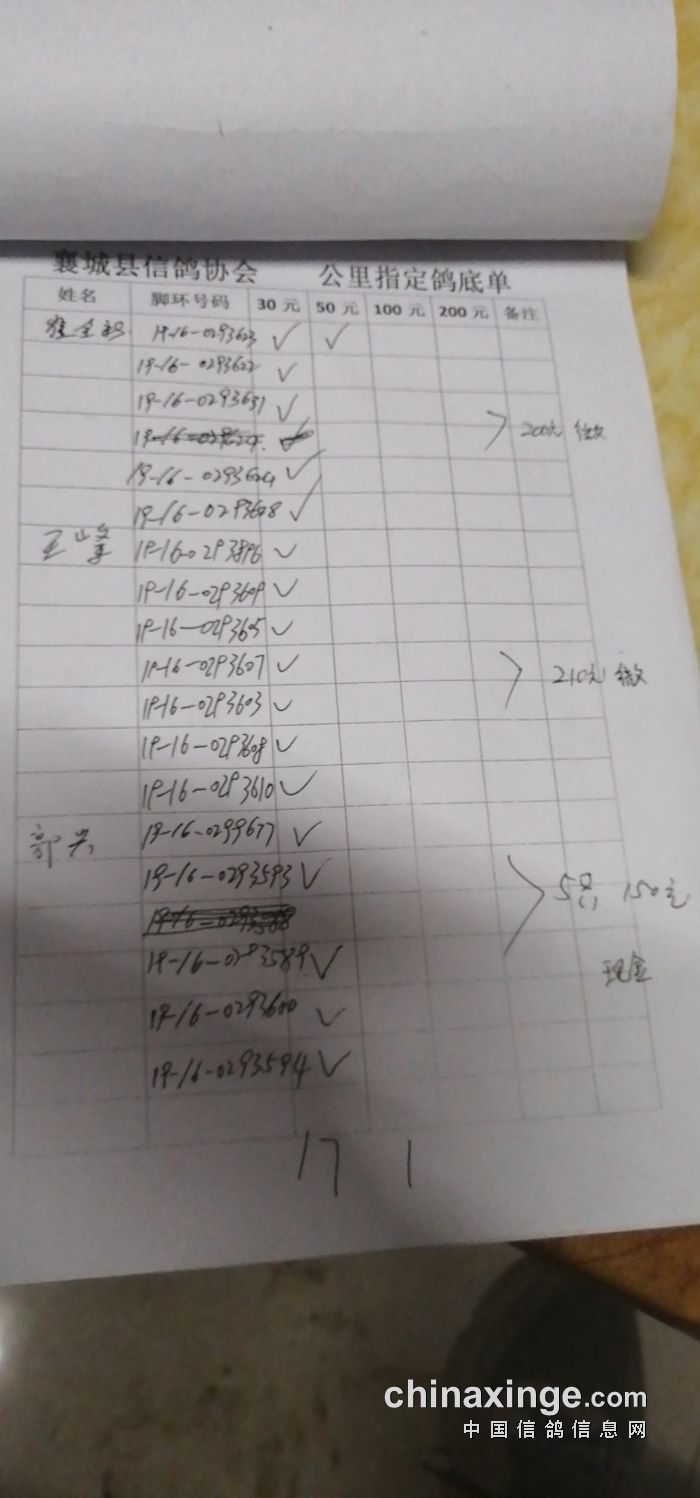 襄城县信鸽协会 公里指定鸽底单
姓名 脚环号码 30 元 50 元 100 元 200 元 备注
19-16-0293623 ✓ ✓
19-16-0293622 ✓
19-16-0293631 ✓
200元 缴
19-16-0293624 ✓
19-16-0293628 ✓
王峰 19-16-0293896 ✓
19-16-0293609 ✓
19-16-0293605 ✓
19-16-0293607 ✓ 210元 缴
19-16-0293603 ✓
19-16-0293608 ✓
19-16-0293610 ✓
郭兴 19-16-0299677 ✓
19-16-0293593 ✓ 5只 150元
19-16-0293589 ✓ 现金
19-16-0293600 ✓
19-16-0293594 ✓
17 1
chinaxinge.com
中国信鸽信息网